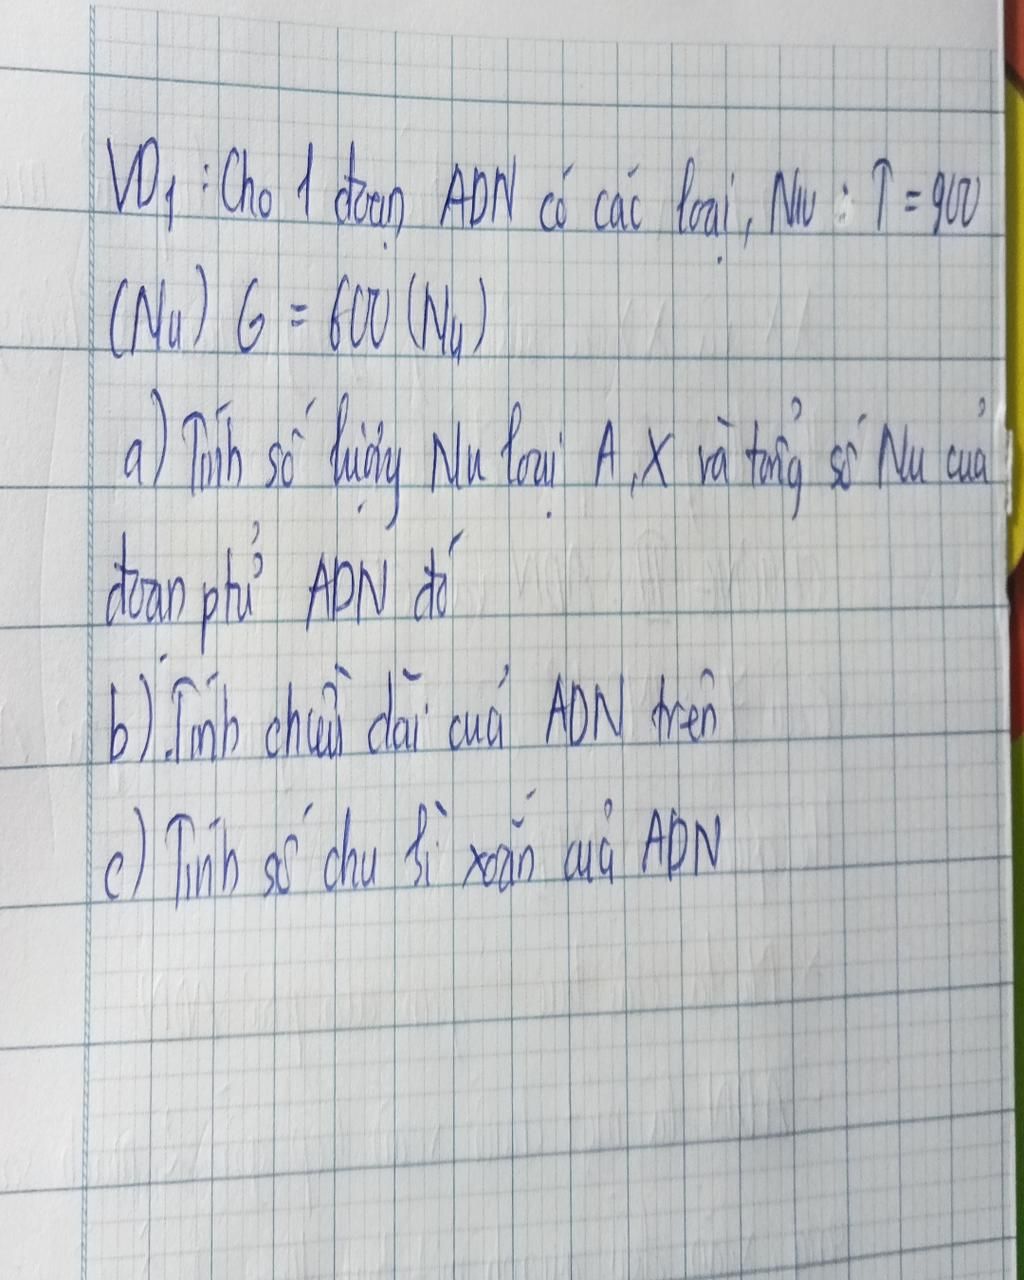 VD1 : Cho 1 đoạn ADN có các loại, Nu : T = 900
(Nu) G = 600 (Nu)
a) Tính số lượng Nu loại A, X và tổng số Nu của
đoạn phử ADN đó
b) Tính chiều dài cuả ADN trên
c) Tính số chu kì xoắn cuả ADN